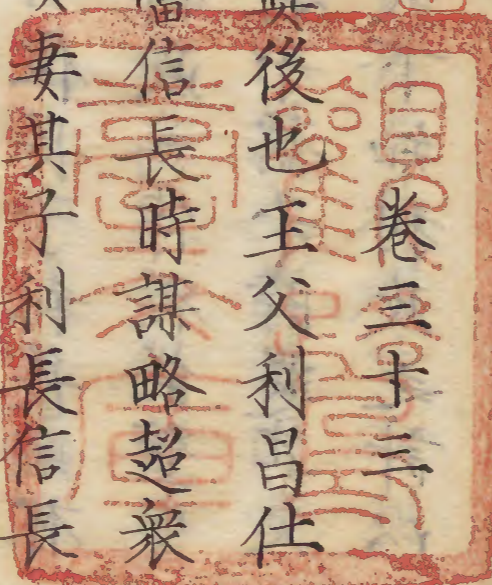 卷三十三
後也王父利昌仕
信長時謀略超衆
妻其子利長信長